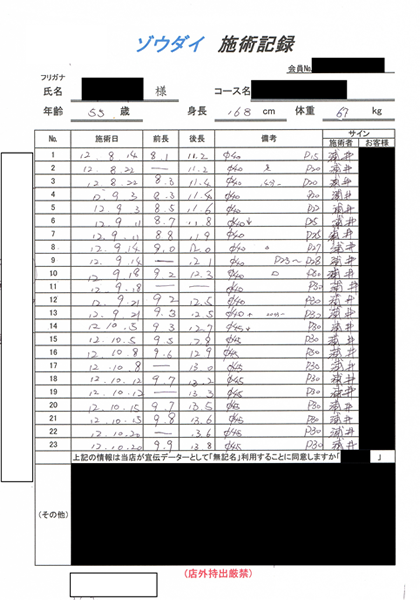 ゾウダイ 施術記録
会員No.
フリガナ
氏名 様 コース名
年齢 53 歳 身長 168 cm 体重 67 kg
No. 施術日 前長 後長 備考 サイン
施術者 お客様
1 12 8.14 8.1 11.2 φ40 P15 浦井
2 12 8.22 — 11.2 φ40 P20 浦井
3 12 8.22 8.3 11.4 φ40 P20 浦井
4 12 9.3 8.3 11.4 φ40 P20 浦井
5 12 9.3 8.5 11.6 φ40 浦井
6 12 9.11 8.7 11.8 φ40 P25 浦井
7 12 9.11 8.8 11.9 φ40 P25 浦井
8 12 9.14 9.0 12.0 φ40 P27 浦井
9 12 9.14 — 12.1 φ40 P25~P28 浦井
10 12 9.18 9.2 12.3 φ40 P30 浦井
11 12 9.18 — φ40 P30 浦井
12 12.9.21 9.2 12.5 φ40 P30 浦井
13 12.9.21 9.3 12.5 φ40 P30 浦井
14 12 10.5 9.3 12.7 φ45 P30 浦井
15 12 10.5 9.5 φ45 P30 浦井
16 12.10.8 9.6 12.9 φ45 P30 浦井
17 12.10.8 — 13.0 φ45 P30 浦井
18 12.10.12 9.7 13.2 φ45 P30 浦井
19 12.10.12 — 13.3 φ45 P30 浦井
20 12.10.15 9.7 13.5 φ45 P30 浦井
21 12.10.15 9.8 13.6 φ45 P30 浦井
22 12.10.20 — 13.6 φ45 P30 浦井
23 12.10.20 9.9 13.8 φ45 P30 浦井
上記の情報は当店が宣伝データーとして「無記名」利用することに同意しますか「 」
(その他)
(店外持出厳禁)